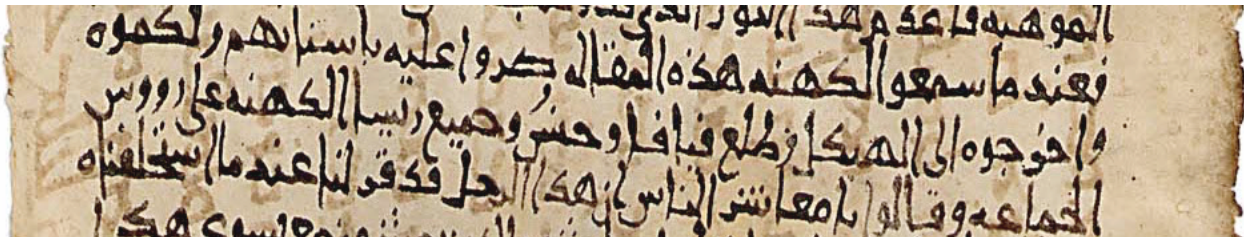 الموهبه فاعدم هدا النور الدي
فعند ما سمعوا الكهنه هذه المقاله صروا عليه باسنانهم ولكموه
واخرجوه الى الهيكل وطلع قيافا وحنن وجميع رئيسا الكهنه على رووس
الجماعه وقالوا يا معاشر الناس ان هدا الرجل قد قر لنا عند ما استحلفناه
سوى هكدا